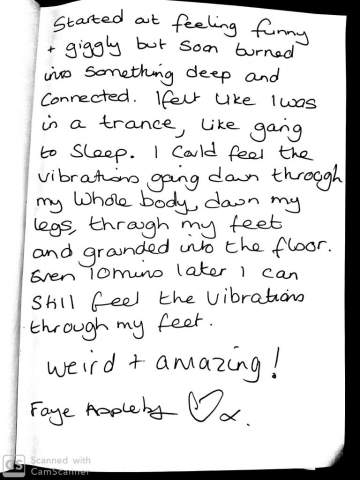 Started out feeling funny
+ giggly but soon turned
into something deep and
connected. I felt like I was
in a trance, like going
to sleep. I could feel the
vibrations going down through
my whole body, down my
legs, through my feet
and grounded into the floor.
Even 10mins later I can
still feel the vibrations
through my feet.
weird + amazing!
Faye Appleby ♡x.
CS Scanned with
CamScanner